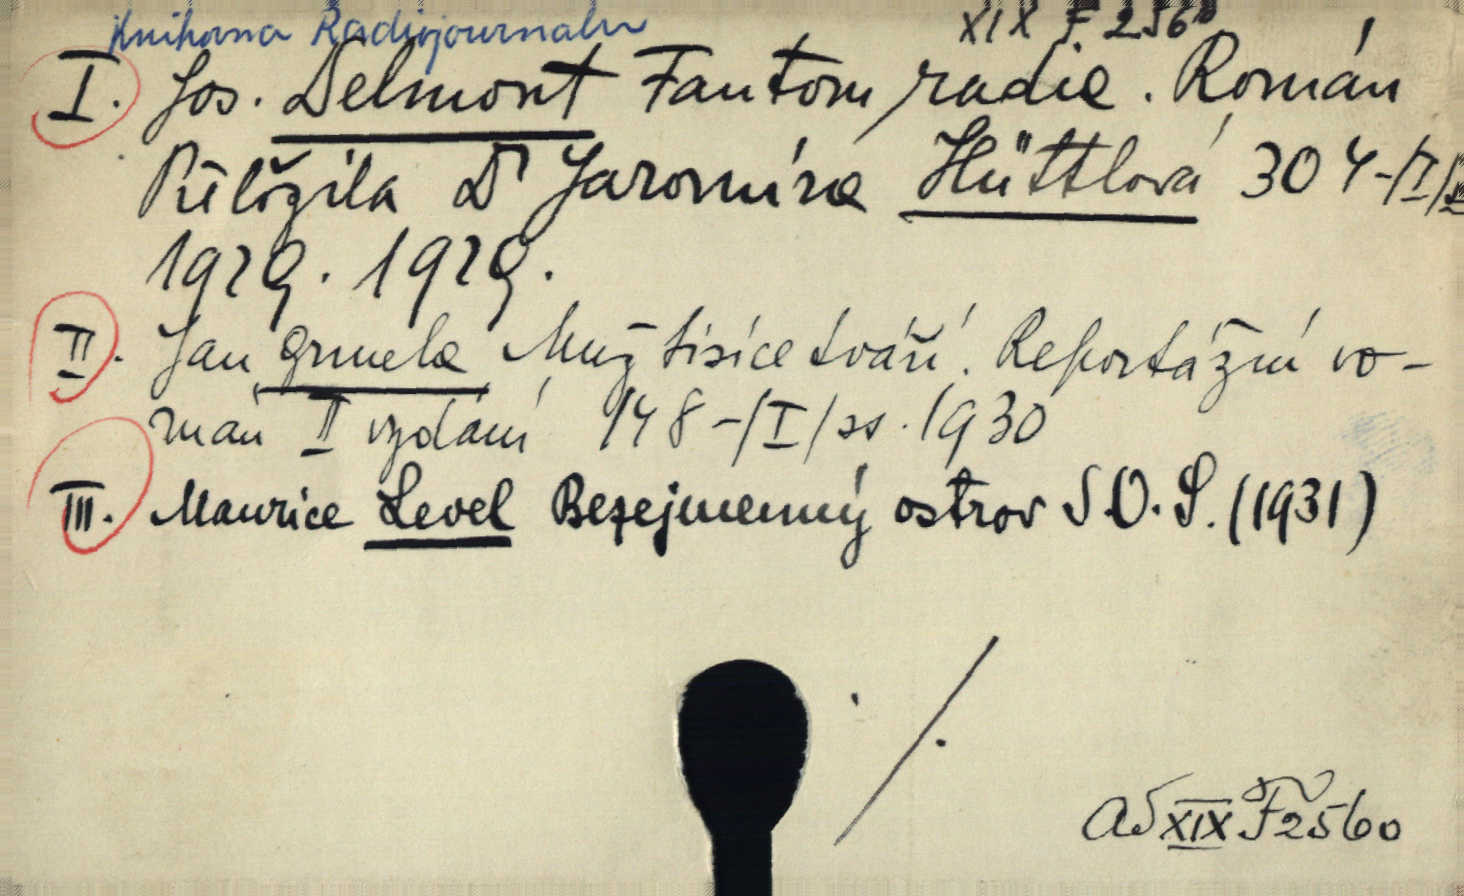 Knihovna Radiojournalu XIX F 2560
I. Jos. Delmont Fantom radia. Román
Přeložila Dr Jaromíra Hüttlová 304-/I/
1929. 1929.
II. Jan Grmela Muž tisíce tváří. Reportážní ro-
mán II vydání 148-/I/ ss. 1930
III. Maurice Level Bezejmenný ostrov S.O.S. (1931)
Ad XIX F 2560